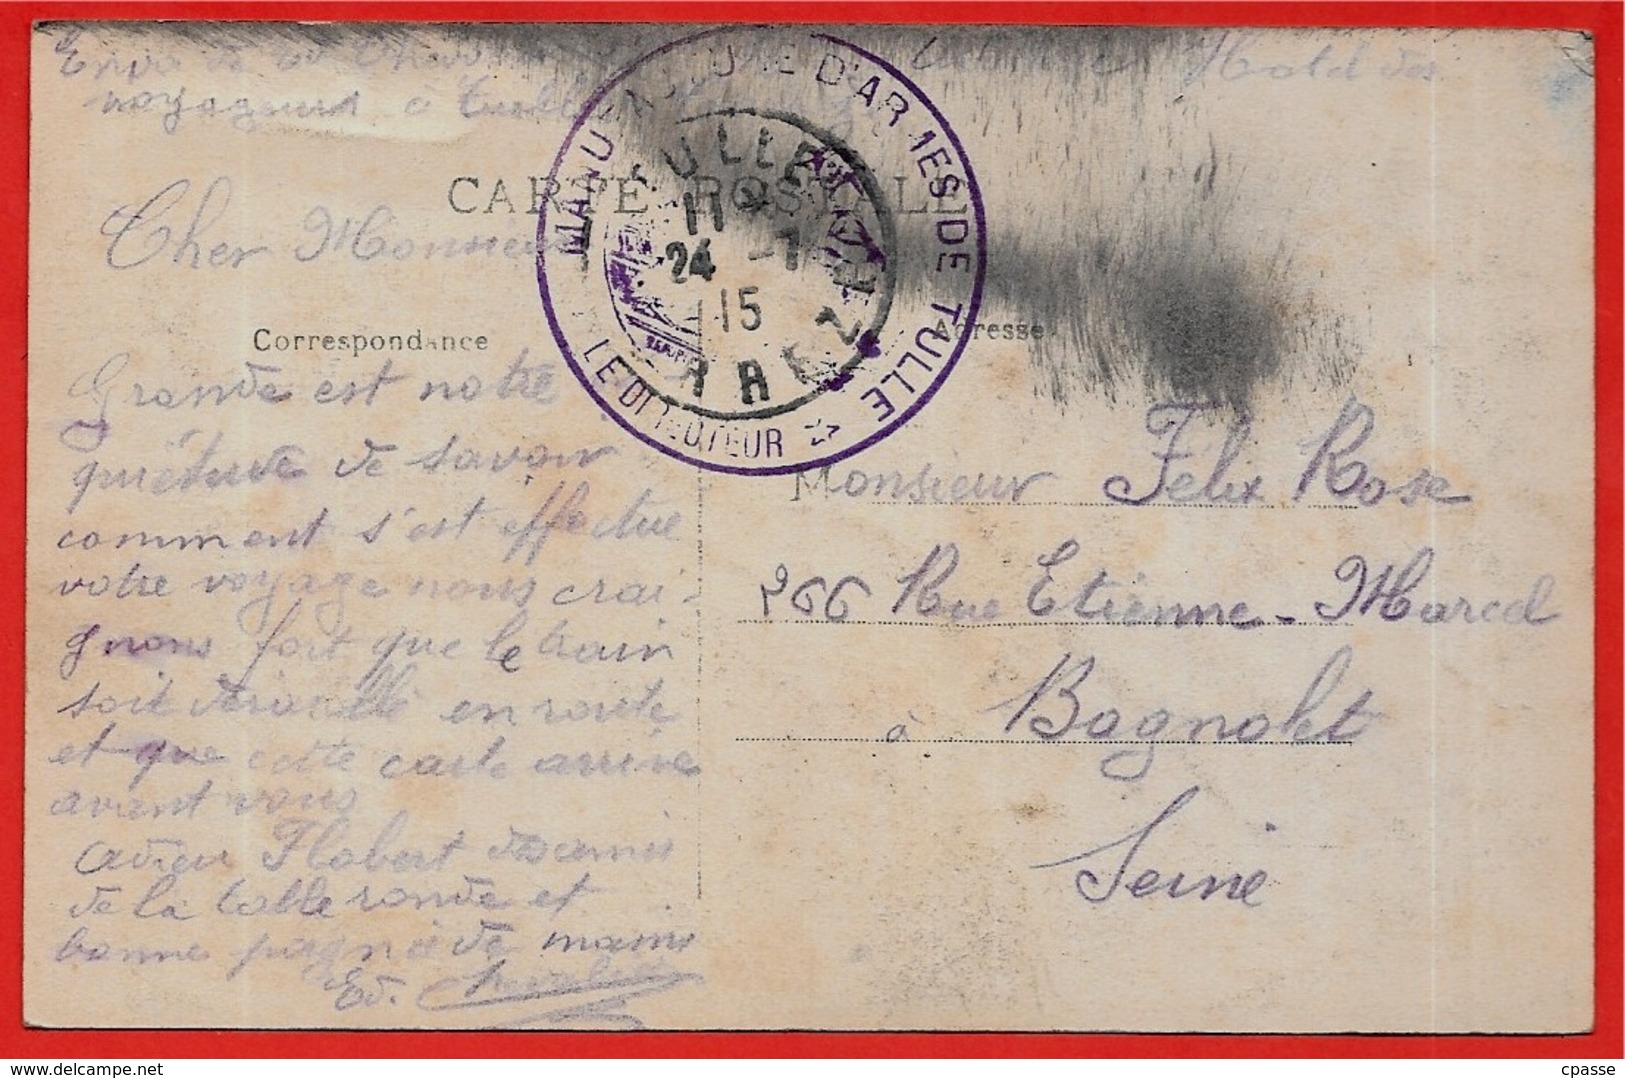 Envoi de Ed. Hotel des
voyageurs à Tulle
CARTE POSTALE
MANUFACTURE D'ARMES DE TULLE
LE DIRECTEUR
TULLE
11
24 -7
15
CORREZE
Cher Monsieur
Correspondance
Adresse
Grande est notre
quiétude de savoir
comment s'est effectue
votre voyage nous crai-
gnons fort que le train
soit deraillé en route
et que cette carte arrive
avant vous
adieu Flobert des amis
de la table ronde et
bonne poignée de mains
Ed.
Monsieur Felix Rose
266 Rue Etienne-Marcel
à Bagnolet
Seine
cpasse